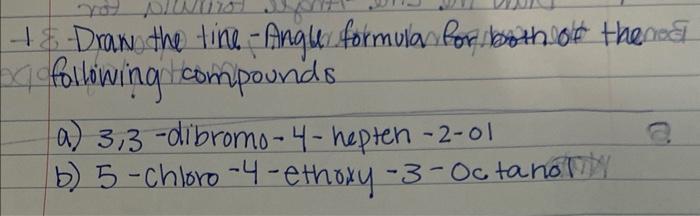 1. Draw the line-Angle formula for both of the
following compounds
a) 3,3-dibromo-4-hepten-2-ol
b) 5-chloro-4-ethoxy-3-Octanol